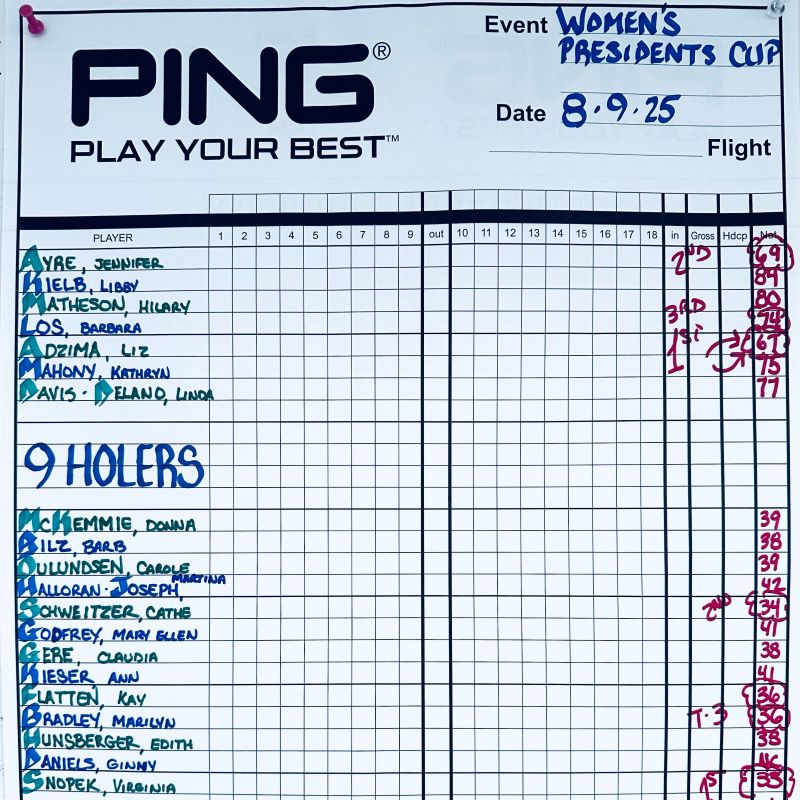 Event WOMEN'S
PRESIDENTS CUP
PING®
Date 8·9·25
PLAY YOUR BEST™
Flight
PLAYER 1 2 3 4 5 6 7 8 9 out 10 11 12 13 14 15 16 17 18 in Gross Hdcp Net
AYRE, JENNIFER 2ND 69
KIELB, LIBBY 84
MATHESON, HILARY 80
LOS, BARBARA 3RD 74
ADZIMA, LIZ 1ST 67
MAHONY, KATHRYN 75
DAVIS·DELAND, LINDA 77
9 HOLERS
MCKEMMIE, DONNA 39
BILZ, BARB 38
OULUNDSEN, CAROLE 39
HALLORAN·JOSEPH, MARTINA 42
SCHWEITZER, CATHE 2ND 34
GODFREY, MARY ELLEN 41
GERE, CLAUDIA 38
KIESER, ANN 41
FLATTEN, KAY 36
BRADLEY, MARILYN T·3 36
HUNSBERGER, EDITH 38
DANIELS, GINNY NC
SNOPEK, VIRGINIA 1ST 33